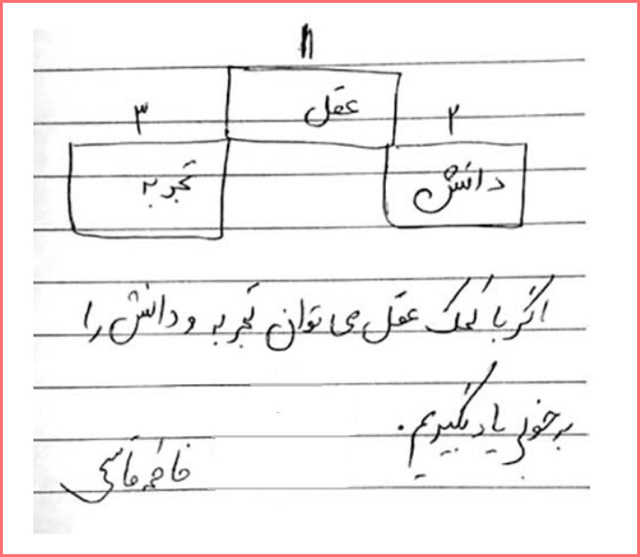 ۱
عقل
۲
۳
دانش
تجربه
اگر با کمک عقل می توان تجربه و دانش را
به خوبی یاد بگیریم.
فاطمه قاسمی